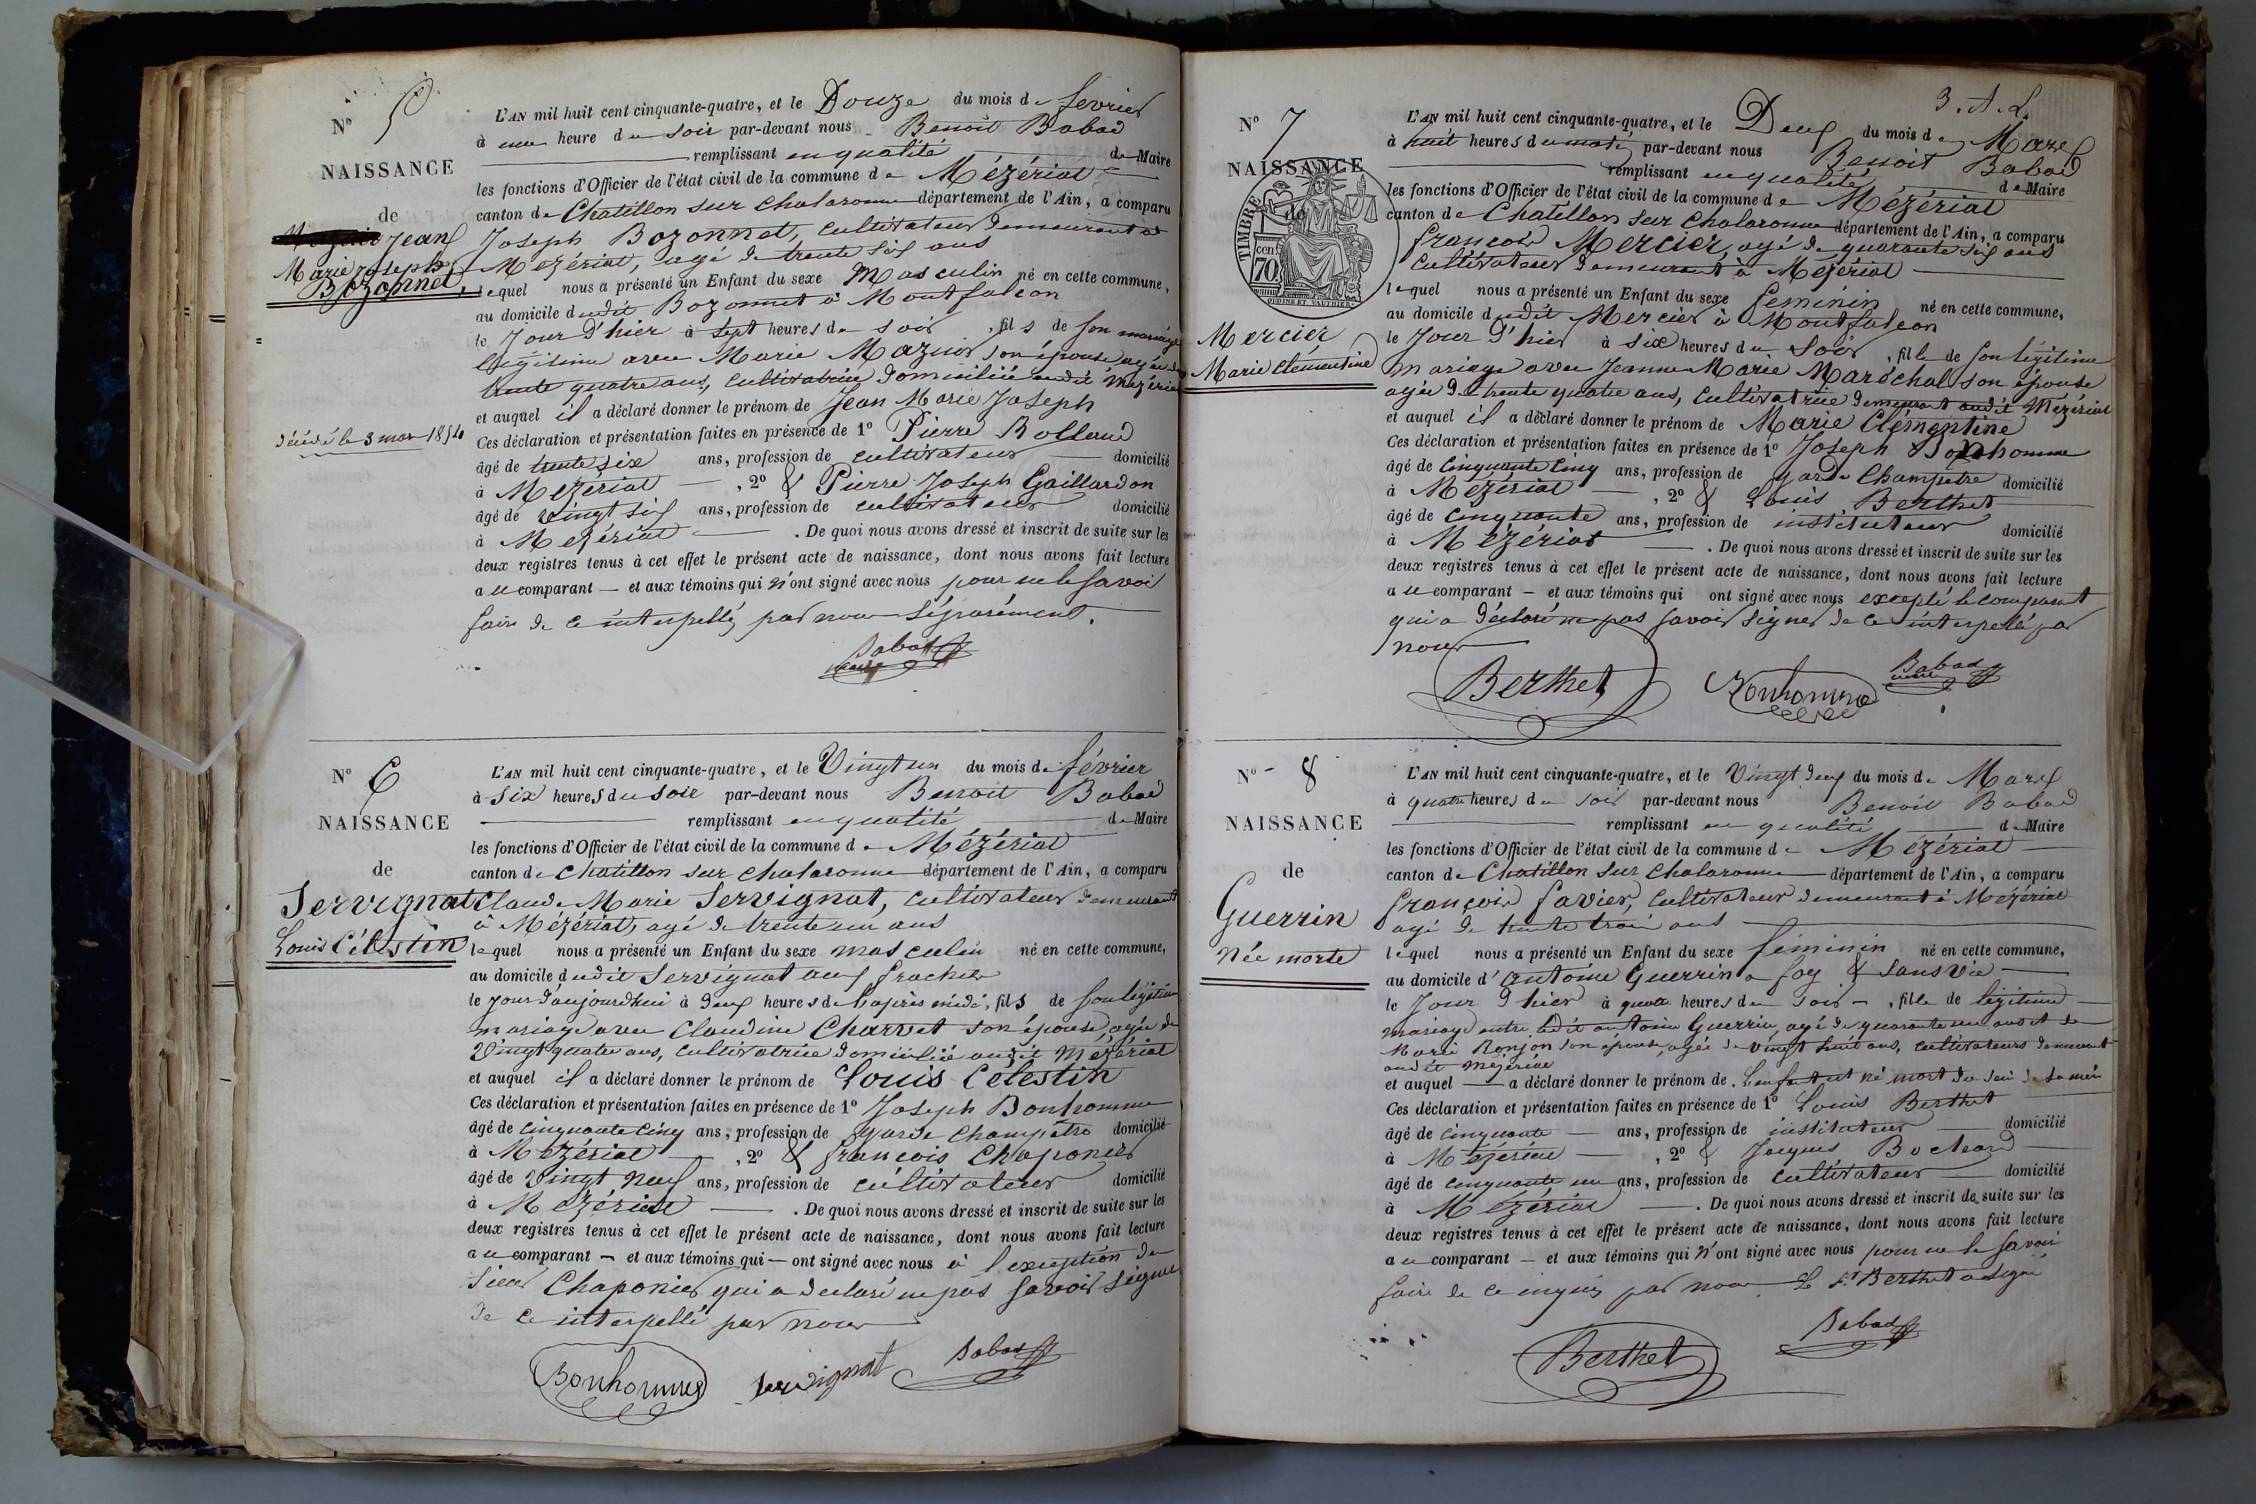 N° 5
NAISSANCE
de
Jean
Marie Joseph
Bozonnet
décédé le 3 mars 1854
L'AN mil huit cent cinquante-quatre, et le Douze du mois de fevrier
à une heure du soir par-devant nous Benoit Babad
remplissant en qualité de Maire
les fonctions d'Officier de l'état civil de la commune de Mézériat
canton de Chatillon sur Chalaronne département de l'Ain, a comparu
Joseph Bozonnet, cultivateur demeurant à
Mézériat, agé de trente six ans
lequel nous a présenté un Enfant du sexe Masculin né en cette commune,
au domicile dudit Bozonnet à Montfalcon
le Jour d'hier à Sept heures du soir, fils de son mariage
légitime avec Marie Mazuir son épouse agée de
trente quatre ans, cultivatrice domiciliée audit Mézériat
et auquel il a déclaré donner le prénom de Jean Marie Joseph
Ces déclaration et présentation faites en présence de 1° Pierre Rolland
âgé de trente six ans, profession de cultivateur domicilié
à Mézériat, 2° & Pierre Joseph Gaillardon
âgé de vingt six ans, profession de cultivateur domicilié
à Mézériat. De quoi nous avons dressé et inscrit de suite sur les
deux registres tenus à cet effet le présent acte de naissance, dont nous avons fait lecture
au comparant — et aux témoins qui n'ont signé avec nous pour ne le savoir
faire de ce interpellés par nous séparément.
Babad
maire
N° 6
NAISSANCE
de
Servignat
Louis Célestin
L'AN mil huit cent cinquante-quatre, et le Vingt un du mois de février
à six heures du soir par-devant nous Benoit Babad
remplissant en qualité de Maire
les fonctions d'Officier de l'état civil de la commune de Mézériat
canton de Chatillon sur Chalaronne département de l'Ain, a comparu
Claude Marie Servignat, cultivateur demeurant
à Mézériat, agé de trente un ans
lequel nous a présenté un Enfant du sexe masculin né en cette commune,
au domicile dudit Servignat aux
le jour d'aujourdhui à deux heures de l'après midi, fils de son légitime
mariage avec Claudine Charvet son épouse, agée de
Vingt quatre ans, cultivatrice domiciliée audit Mézériat
et auquel il a déclaré donner le prénom de Louis Célestin
Ces déclaration et présentation faites en présence de 1° Joseph Bonhomme
âgé de cinquante cinq ans, profession de garde champêtre domicilié
à Mézériat — , 2° & francois Chaponier
âgé de vingt neuf ans, profession de cultivateur domicilié
à Mézériat — . De quoi nous avons dressé et inscrit de suite sur les
deux registres tenus à cet effet le présent acte de naissance, dont nous avons fait lecture
au comparant — et aux témoins qui — ont signé avec nous à l'exception du
sieur Chaponier qui a déclaré ne pas savoir signer
de ce interpellé par nous
Bonhomme Servignat Babad
3. A. L.
N° 7
NAISSANCE
de
TIMBRE
70
Mercier
Marie Clémentine
L'AN mil huit cent cinquante-quatre, et le Deux du mois de Mars
à huit heures du matin par-devant nous Benoit Babad
remplissant en qualité de Maire
les fonctions d'Officier de l'état civil de la commune de Mézériat
canton de Chatillon sur Chalaronne département de l'Ain, a comparu
françois Mercier, agé de quarante six ans
cultivateur demeurant à Mézériat
lequel nous a présenté un Enfant du sexe feminin né en cette commune,
au domicile dudit Mercier à Montfalcon
le Jour d'hier à six heures du Soir, fille de son légitime
mariage avec Jeanne Marie Maréchal son épouse
agée de trente quatre ans, cultivatrice demeurant audit Mézériat
et auquel il a déclaré donner le prénom de Marie Clémentine
Ces déclaration et présentation faites en présence de 1° Joseph Bonhomme
âgé de cinquante cinq ans, profession de garde champêtre domicilié
à Mézériat — , 2° & Louis Berthet
âgé de cinquante ans, profession de instituteur domicilié
à Mézériat — . De quoi nous avons dressé et inscrit de suite sur les
deux registres tenus à cet effet le présent acte de naissance, dont nous avons fait lecture
au comparant — et aux témoins qui ont signé avec nous excepté le comparant
qui a déclaré ne pas savoir signer de ce interpellé par
nous
Berthet Bonhomme Babad
maire
N° 8
NAISSANCE
de
Guerrin
Née morte
L'AN mil huit cent cinquante-quatre, et le Vingt deux du mois de Mars
à quatre heures du soir par-devant nous Benoit Babad
remplissant en qualité de Maire
les fonctions d'Officier de l'état civil de la commune de Mézériat
canton de Chatillon sur Chalaronne département de l'Ain, a comparu
françois favier, cultivateur demeurant à Mézériat
agé de trente trois ans
lequel nous a présenté un Enfant du sexe féminin né en cette commune,
au domicile d'antoine Guerrin a foy & sans vie
le Jour d'hier à quatre heures du soir, fille de légitime
mariage entre ledit antoine Guerrin, agé de quarante un ans et de
Marie Ronjon son épouse, agée de vingt huit ans, cultivateurs demeurant
audit Mézériat
et auquel — a déclaré donner le prénom de. L'enfant est né mort du sein de sa mère
Ces déclaration et présentation faites en présence de 1° Louis Berthet
âgé de cinquante — ans, profession de instituteur domicilié
à Mézériat — , 2° & Jacques Bochard
âgé de cinquante un ans, profession de cultivateur domicilié
à Mézériat — . De quoi nous avons dressé et inscrit de suite sur les
deux registres tenus à cet effet le présent acte de naissance, dont nous avons fait lecture
au comparant — et aux témoins qui n'ont signé avec nous pour ne le savoir
faire de ce enquis par nous. Le sr Berthet a signé
Berthet Babad